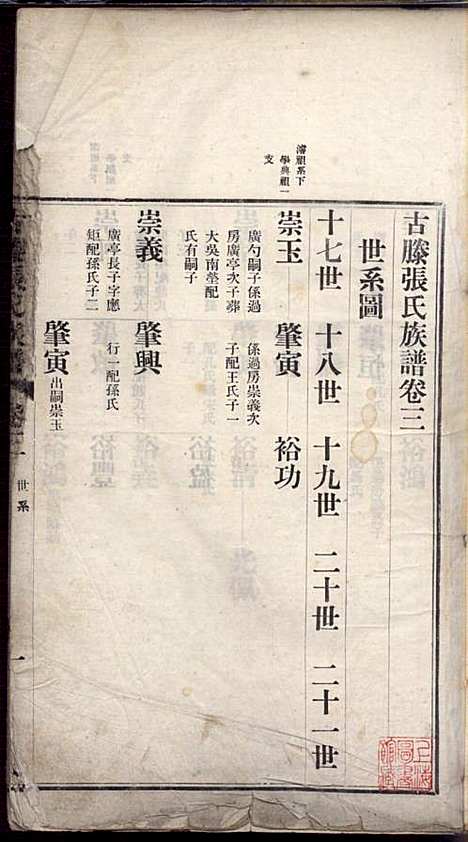 古滕張氏族譜卷三
世系圖
十七世 十八世 十九世 二十世 二十一世
濬顯系下
學典顯一
支
崇玉 肇寅 裕功
廣勺嗣子係過 係過房崇義次
房廣亭次子葬 子配王氏子一
大吳南塋配
氏有嗣子
崇義 肇興
廣亭長子字應 行一配孫氏
矩配孫氏子二
肇寅 出嗣崇玉
世系
一
上海圖書館藏